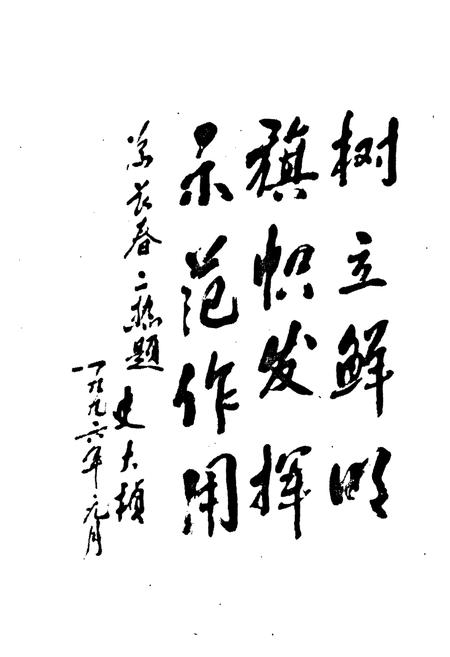 树立鲜明
旗帜发挥
示范作用
为长春二热题
史大桢
一九九六年元月